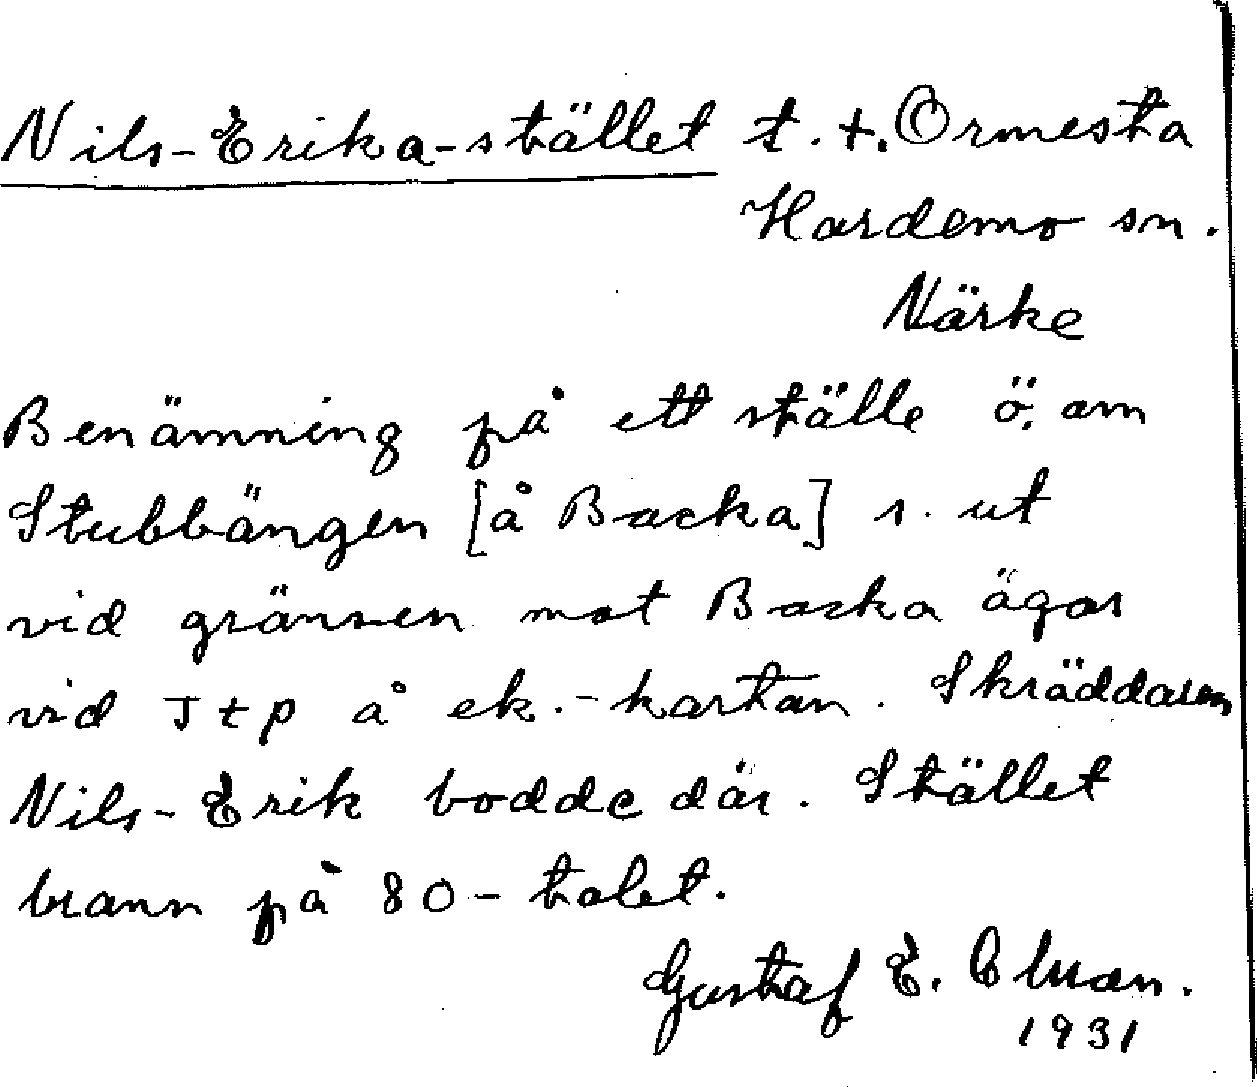 Nils-Erika-stället t. t. Ormesta
Hardemo sn.
Närke
Benämning på ett ställe ö. om
Stubbängen [å Backa] s. ut
vid gränsen mot Backa ägor
vid J t p å ek.-kartan. Skräddaren
Nils-Erik bodde där. Stället
brann på 80-talet.
Gustaf E.
1931